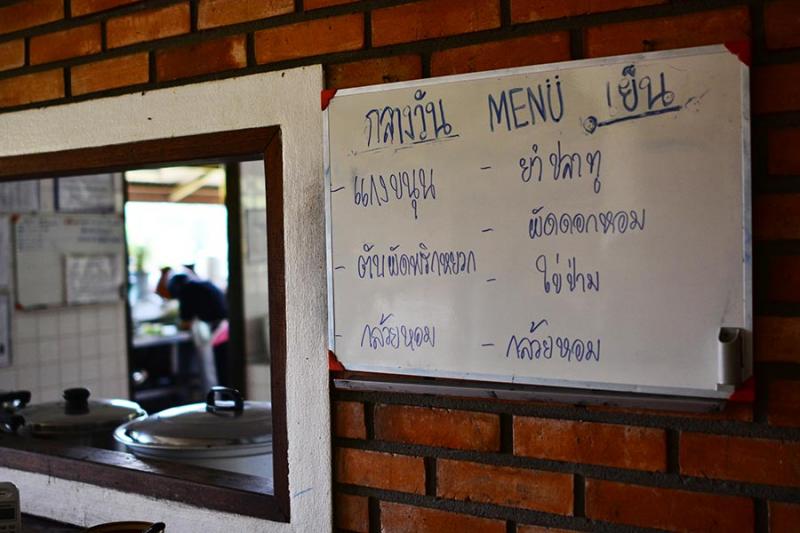 กลางวัน MENÜ เย็น
- แกงขนุน
- ตับผัดพริกหยวก
- กล้วยหอม
- ยำปลาทู
- ผัดดอกหอม
- ไข่ป่าม
- กล้วยหอม